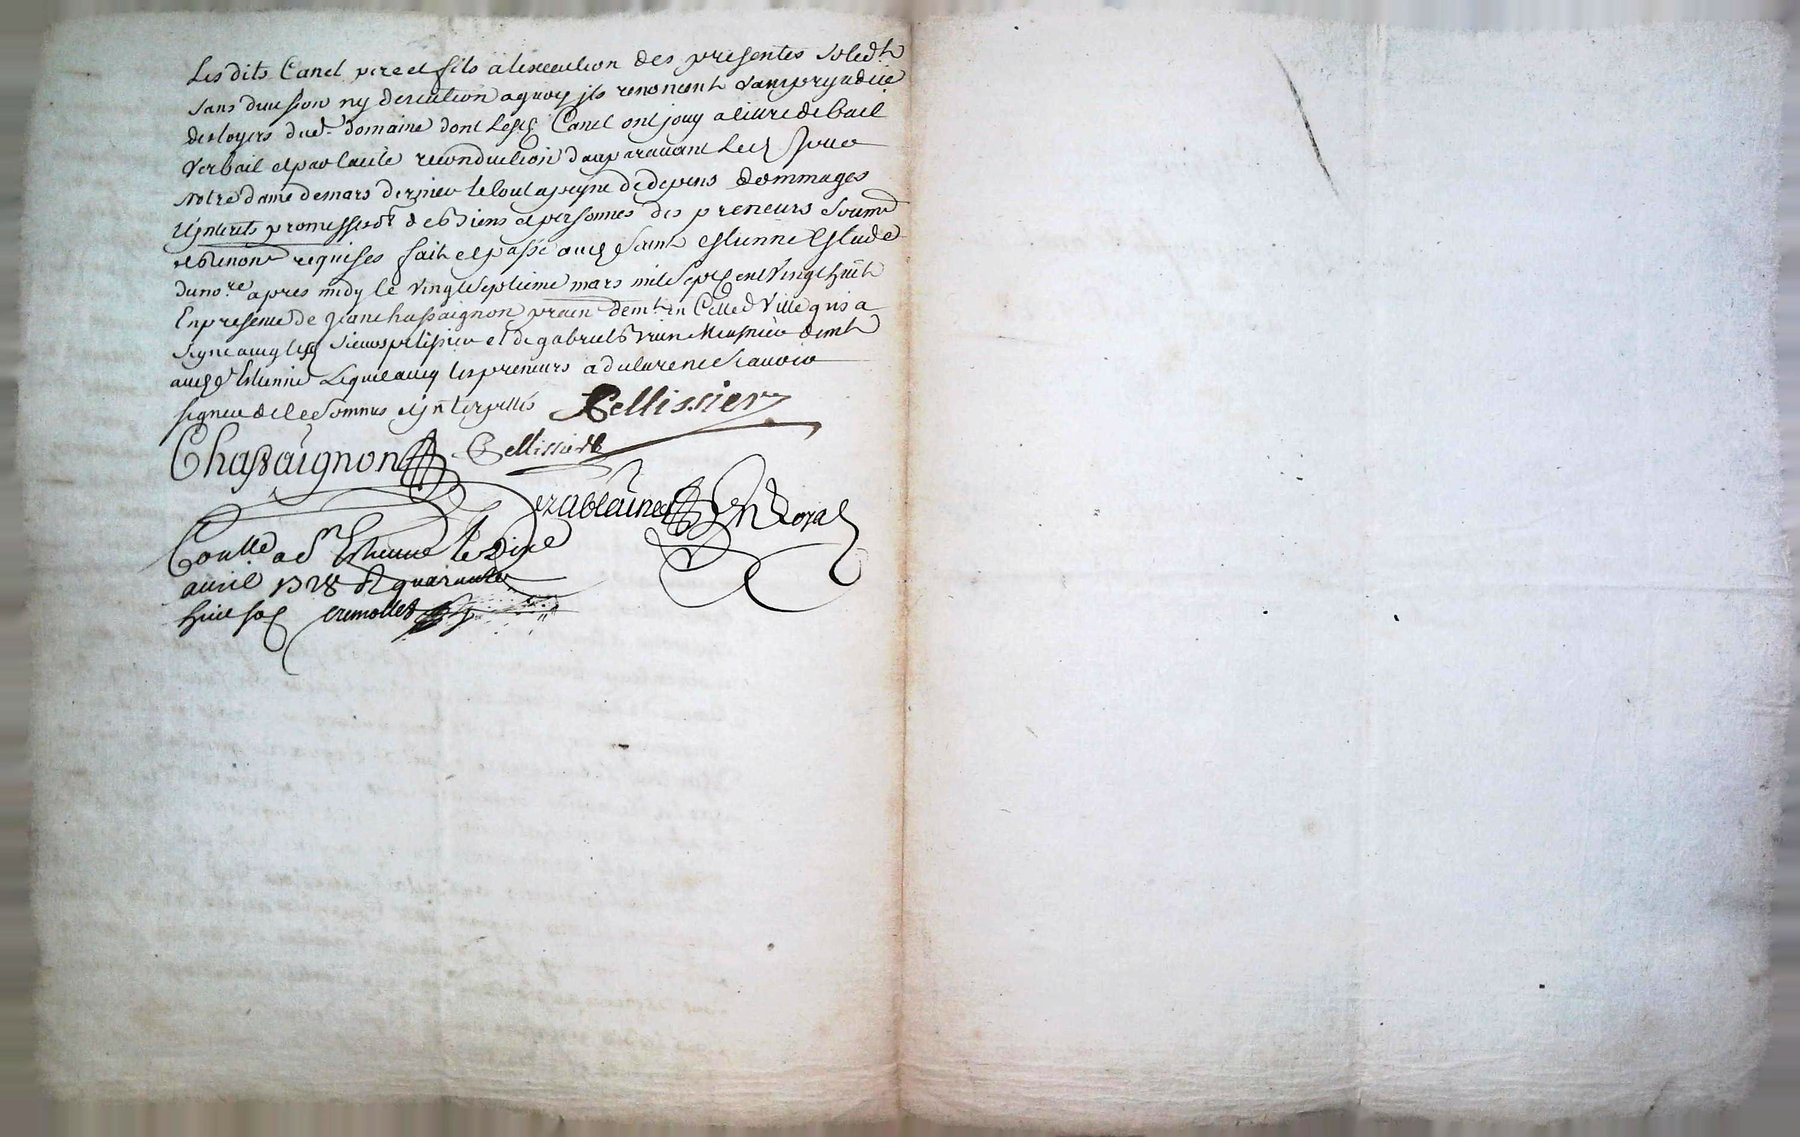 Les dits Canel pere et fils a lexecution des presentes solid.t
sans division ny discution a quoy ils renoncent sans prejudice
des loyers dud.t domaine dont lesd Canel ont jouy a titre de bail
verbail et par tacite reconduction dauparavant led jour
notre dame de mars dernier le tout a peyne de depens dommages
Ejnterets promess obt de biens et personnes des preneurs soumd
et renonc requises fait et passé aud saint estienne Estude
du no.re apres midy le vingt septieme mars mil sept cent vingt huit
En presence de Jean Chassaignon prain dem.t en Cette d Ville qui a
signe avec lesd sieurs pelissier et de gabriel Meusnier demt
aud St Estienne Lequel avec les preneurs a declare ne scavoir
signer de ce somnes et jnterpellés Pellissier
Chassaignon Pellissier
Derablaine Royal
Con.lle a St Estienne le dixe
avril 1728 R quarante
huit sos cremollet